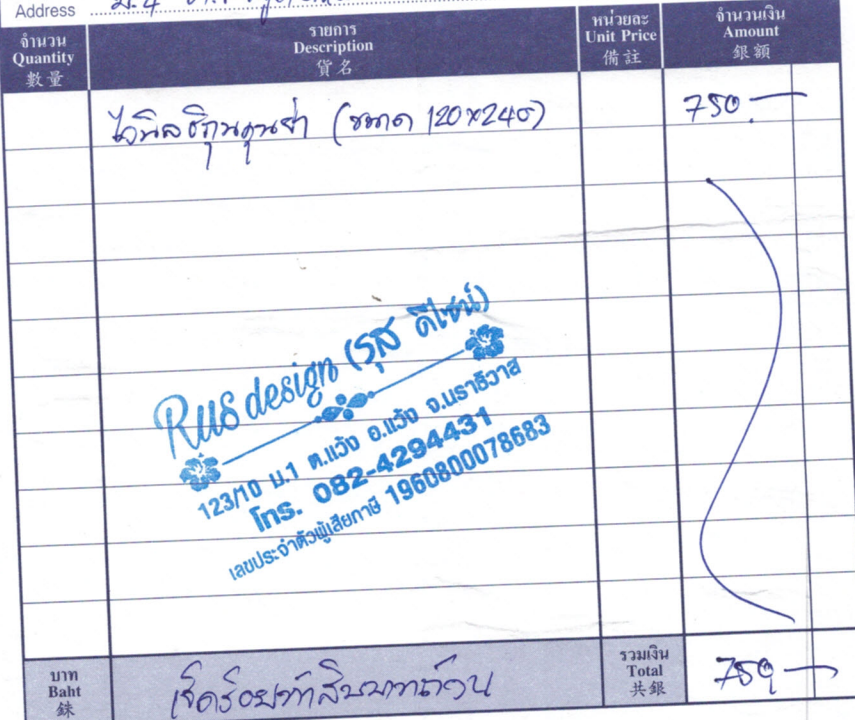 Address ม.4
จำนวน
Quantity
數量
รายการ
Description
貨名
หน่วยละ
Unit Price
備註
จำนวนเงิน
Amount
銀額
ไวนิล (ขนาด 120x240) 750.-
Rus design (รุส ดีไซน์)
123/10 ม.1 ต.แว้ง อ.แว้ง จ.นราธิวาส
โทร. 082-4294431
เลขประจำตัวผู้เสียภาษี 1960800078683
บาท
Baht
銖
เจ็ดร้อยห้าสิบบาทถ้วน
รวมเงิน
Total
共銀
750.-